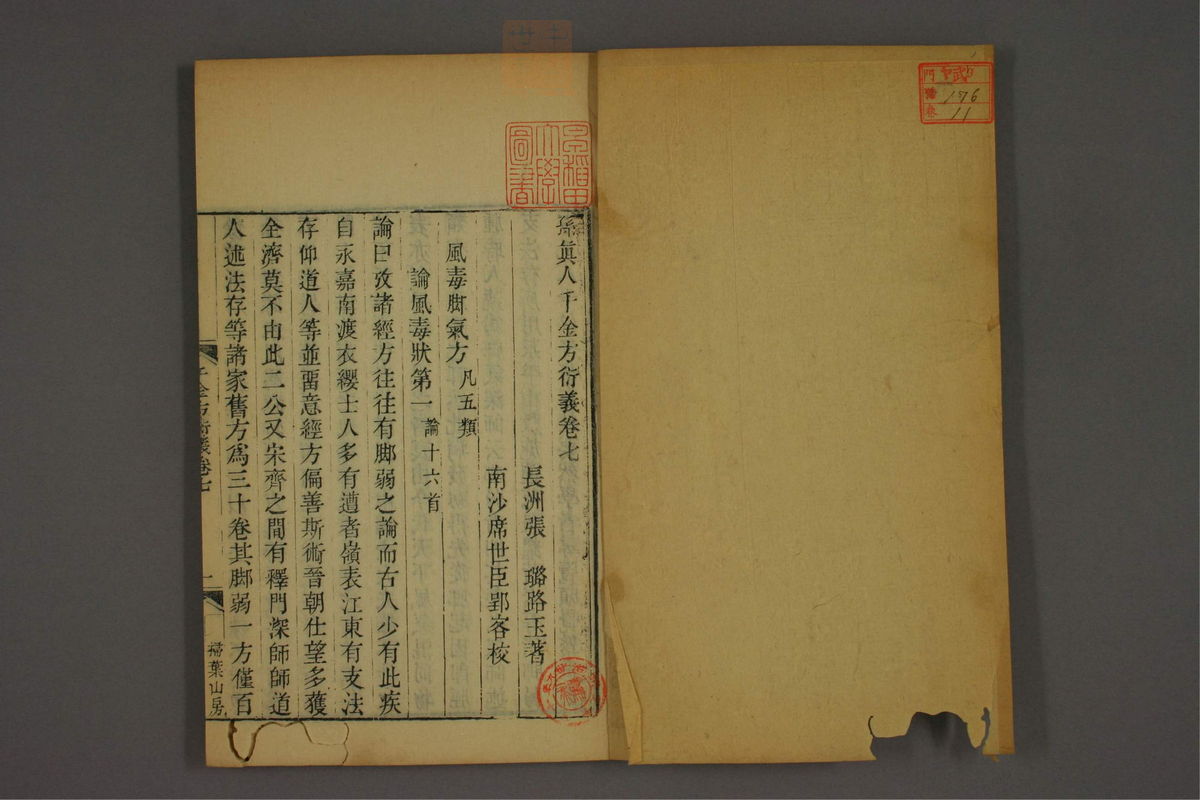 孫眞人千金方衍義卷七
長洲張　璐路玉著
南沙席世臣郢客校
風毒脚氣方 凡五類
論風毒狀第一 論十六首
論曰攷諸經方往往有脚弱之論而古人少有此疾
自永嘉南渡衣纓士人多有遭者嶺表江東有支法
存仰道人等並畱意經方偏善斯術晉朝仕望多獲
全濟莫不由此二公又宋齊之間有釋門深師師道
人述法存等諸家舊方爲三十卷其脚弱一方僅百
千金方衍義卷七
一
掃葉山房
早稻田大學圖書
門
號 176
卷 11